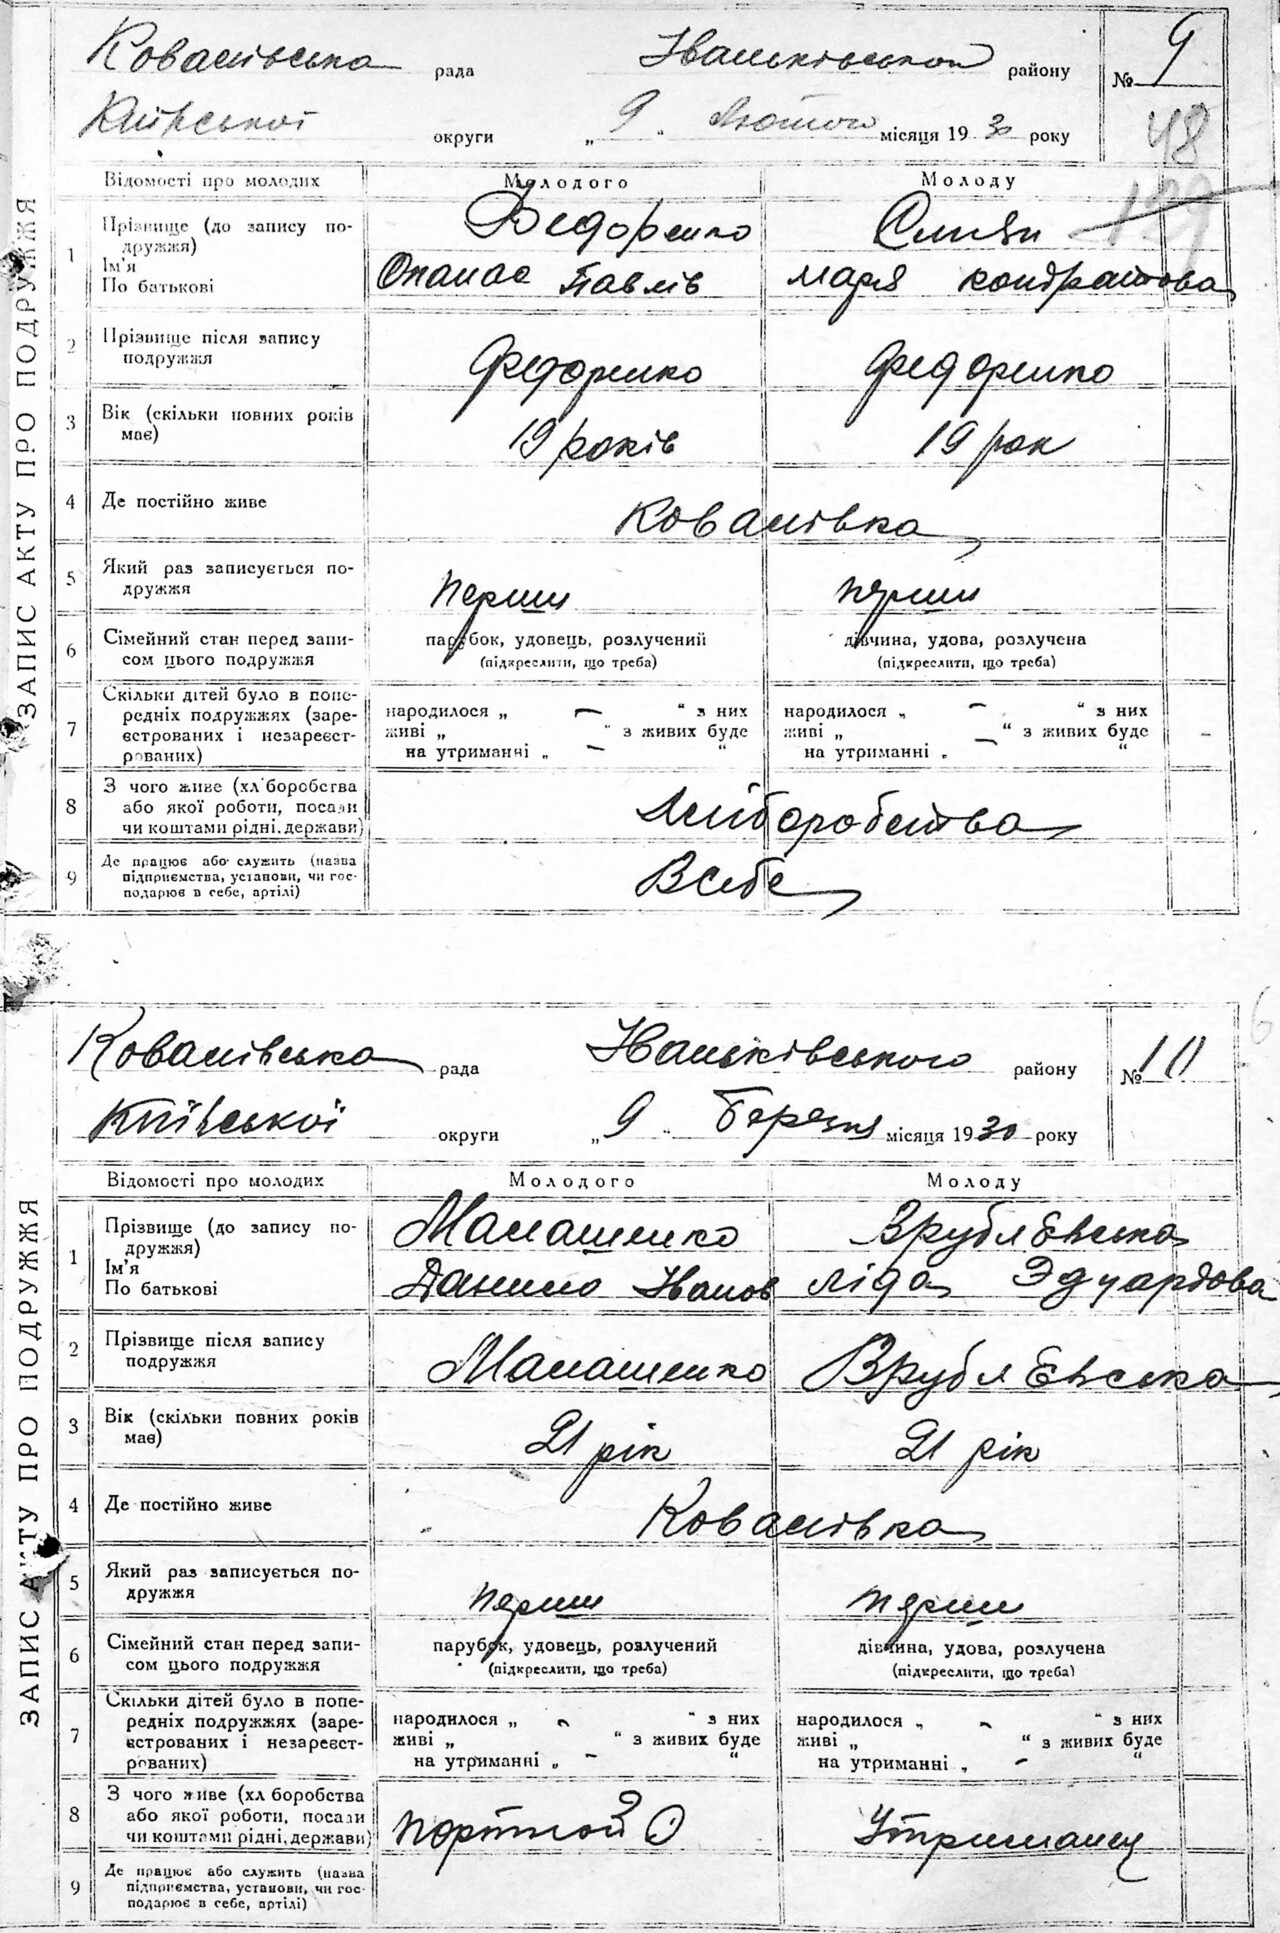 ЗАПИС АКТУ ПРО ПОДРУЖЖЯ
Ковалівська рада Іваньківського району № 9
Київської округи „ 9 „ Лютого місяця 19 30 року
48
129
Відомості про молодих Молодого Молоду
1 Прізвище (до запису по-
дружжя)
Ім'я
По батькові
Федоренко
Опанас Павлів
марія кондратова
2 Прізвище після запису
подружжя
Федоренко Федоренко
3 Вік (скільки повних років
має)
19 років 19 рок
4 Де постійно живе Ковалівка
5 Який раз записується по-
дружжя
перший перший
6 Сімейний стан перед запи-
сом цього подружжя
парубок, удовець, розлучений
(підкреслити, що треба)
дівчина, удова, розлучена
(підкреслити, що треба)
7 Скільки дітей було в попе-
редніх подружжях (заре-
єстрованих і незареєст-
рованих)
народилося „ — “ з них
живі „ “ з живих буде
на утриманні „ — “
народилося „ — “ з них
живі „ “ з живих буде
на утриманні „ — “
8 З чого живе (хліборобства
або якої роботи, посади
чи коштами рідні, держави)
Хліборобства
9 Де працює або служить (назва
підприємства, установи, чи гос-
подарює в себе, артілі)
В себе
ЗАПИС АКТУ ПРО ПОДРУЖЖЯ
Ковалівська рада Іваньківського району № 10
Київської округи „ 9 „ Березня місяця 19 30 року
Відомості про молодих Молодого Молоду
1 Прізвище (до запису по-
дружжя)
Ім'я
По батькові
Малашенко Врублєвська
Данило Іванов ліда Эдуардова
2 Прізвище після запису
подружжя
Малашенко Врублєвська
3 Вік (скільки повних років
має)
21 рік 21 рік
4 Де постійно живе Ковалівка
5 Який раз записується по-
дружжя
перший перший
6 Сімейний стан перед запи-
сом цього подружжя
парубок, удовець, розлучений
(підкреслити, що треба)
дівчина, удова, розлучена
(підкреслити, що треба)
7 Скільки дітей було в попе-
редніх подружжях (заре-
єстрованих і незареєст-
рованих)
народилося „ — “ з них
живі „ “ з живих буде
на утриманні „ — “
народилося „ — “ з них
живі „ “ з живих буде
на утриманні „ — “
8 З чого живе (хліборобства
або якої роботи, посади
чи коштами рідні, держави)
портной Утриманец
9 Де працює або служить (назва
підприємства, установи, чи гос-
подарює в себе, артілі)